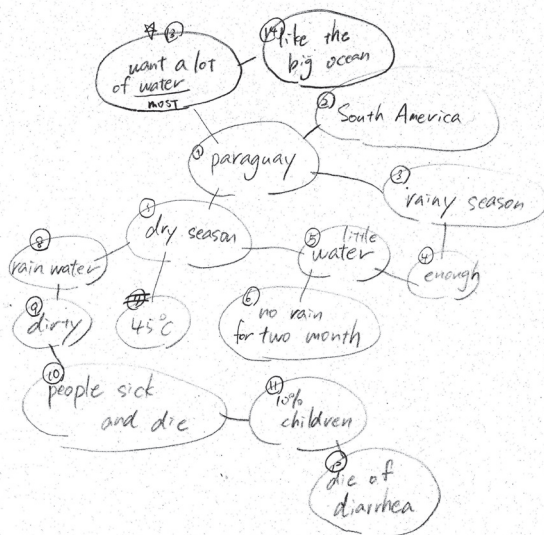 ☆ ⑬
want a lot
of water
most
⑭ like the
big ocean
② South America
① paraguay
③ rainy season
dry season
⑤ little
water
④ enough
⑧ rain water
45°C
⑥ no rain
for two month
⑨ dirty
⑩ people sick
and die
⑪ 10%
children
⑫ die of
diarrhea